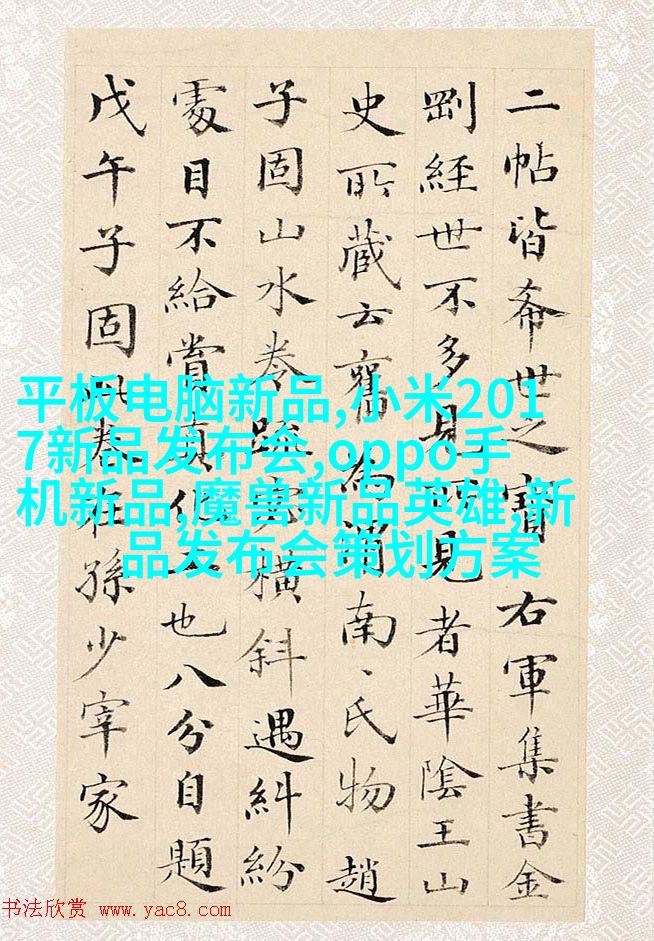 二帖皆希世之寶右軍集書金
剛經世不多見所見者華陰王山
史所藏云舊為渭南氏物趙
子固山水卷疏密橫斜遇糾紛
處目不給賞真化也八分自題
戊午子固卷在孫少宰家
平板电脑新品,小米201
7新品发布会,oppo手
机新品,魔兽新品英雄,新
品发布会策划方案
书法欣赏 www.yac8.com